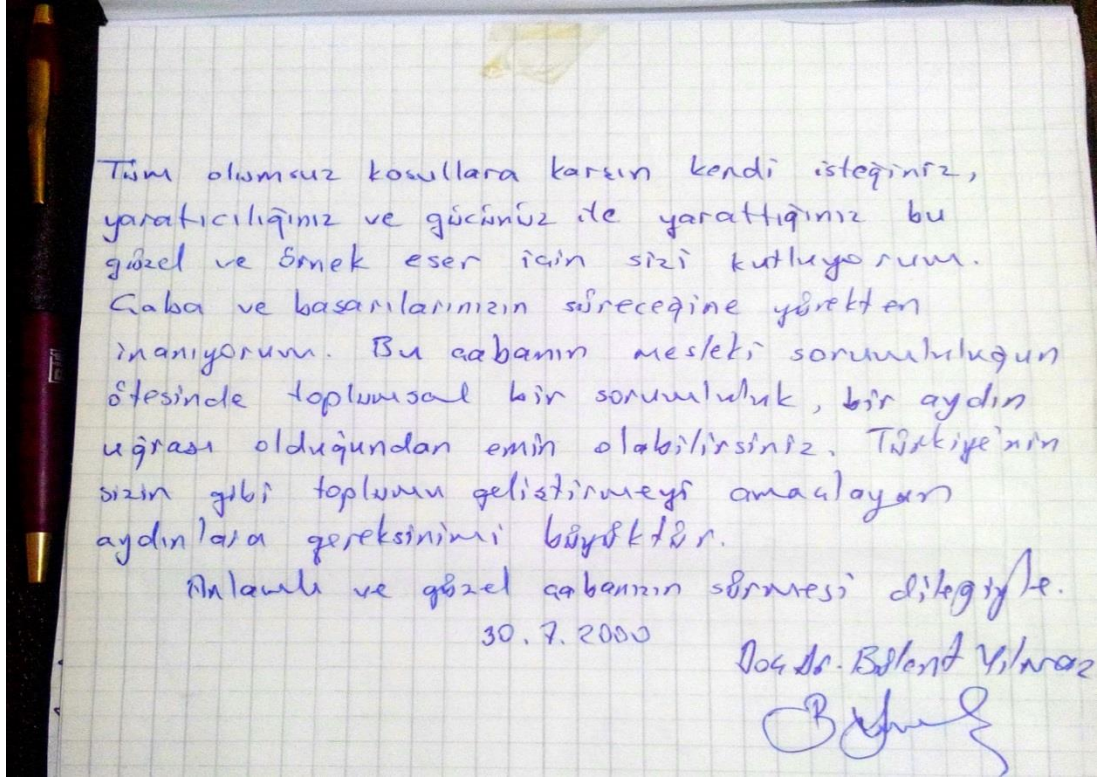 Tüm olumsuz koşullara karşın kendi isteğiniz,
yaratıcılığınız ve gücünüz ile yarattığınız bu
güzel ve örnek eser için sizi kutluyorum.
Çaba ve başarılarınızın süreceğine yürekten
inanıyorum. Bu çabanın mesleki sorumluluğun
ötesinde toplumsal bir sorumluluk, bir aydın
uğraşı olduğundan emin olabilirsiniz. Türkiye'nin
sizin gibi toplumu geliştirmeyi amaçlayan
aydınlara gereksinimi büyüktür.
Anlamlı ve güzel çabanızın sürmesi dileğiyle.
30.7.2000
Doç Dr. Bülent Yılmaz